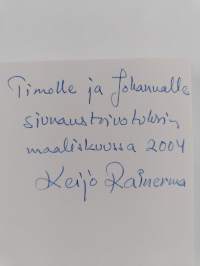 Timolle ja Johannalle
siunaustoivotuksin
maaliskuussa 2004
Keijo Rainerma